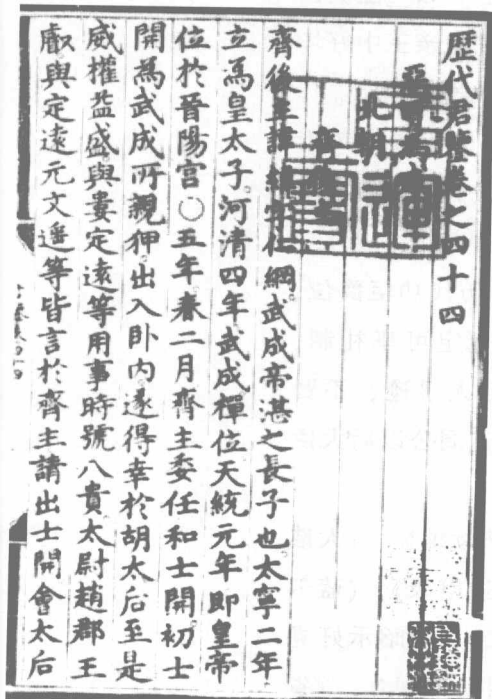 歴代君鑒卷之四十四
北朝
齊後主
齊後主諱緯字仁綱武成帝湛之長子也太寧二年
立爲皇太子河清四年武成禪位天統元年即皇帝
位於晉陽宮○五年春二月齊主委任和士開初士
開爲武成所親狎出入卧内遂得幸於胡太后至是
威權益盛與婁定遠等用事時號八貴太尉趙郡王
叡與定遠元文遥等皆言於齊主請出士開會太后